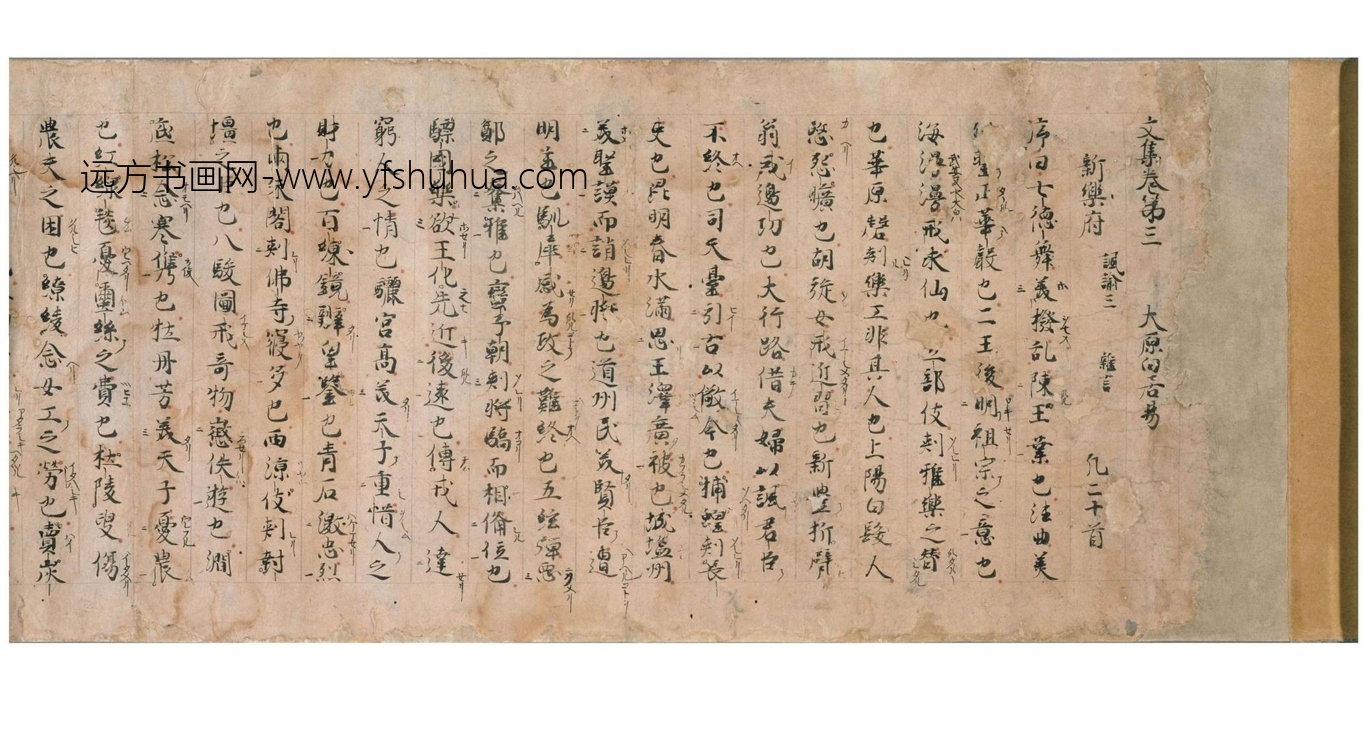 文集卷第三 大原白居易
新樂府 諷諭三 雜言 凡二十首
序曰七德舞美撥乱陳王業也法曲美
正華聲也二王後明祖宗之意也
海漫漫戒求仙也立部伎刺雅樂之替
也華原磬刺樂工非其人也上陽白髮人
愍怨曠也胡旋女戒近習也新豐折臂
翁戒邊功也大行路借夫婦以諷君臣
不終也司天臺引古以儆今也捕蝗刺長
吏也昆明春水滿思王澤廣被也城塩州
美聖謨而誚邊將也道州民美賢臣遭
明主也馴犀感為政之難終也五絃彈惡
鄭之奪雅也蠻子朝刺將驕而相備位也
驃國樂欲王化先近後遠也傳戎人達
窮人之情也驪宮高美天子重惜人之
財力也百煉鏡辯皇鑒也青石激忠烈
也兩朱閣刺佛寺寖多也西涼伎刺封
也八駿圖戒奇物懲佚遊也澗
底松念寒儁也牡丹芳美天子憂農
也紅線毯憂蠶絲之費也杜陵叟傷
農夫之困也繚綾念女工之勞也賣炭
远方书画网-www.yfshuhua.com